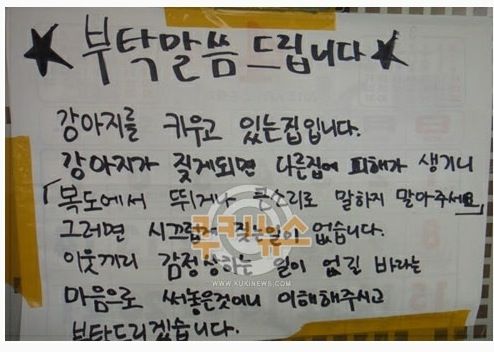 ★ 부탁말씀 드립니다 ★
강아지를 키우고 있는집입니다.
강아지가 짖게되면 다른집에 피해가 생기니
「복도에서 뛰거나 큰소리로 말하지 말아주세요」
그러면 시끄럽게 짖는일이 없습니다.
이웃끼리 감정상하는 일이 없길 바라는
마음으로 써놓은것이니 이해해주시고
부탁드리겠습니다.
쿠키뉴스
WWW.KUKINEWS.COM